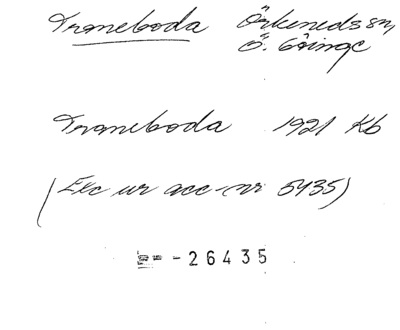 Traneboda Örkeneds sn,
Ö. Göinge
Traneboda 1921 Kb
(Exc ur acc-nr 5435)
- 26435